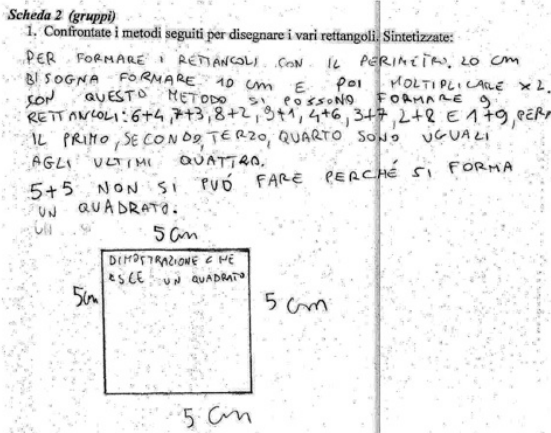 Scheda 2 (gruppi)
1. Confrontate i metodi seguiti per disegnare i vari rettangoli. Sintetizzate:
PER FORMARE I RETTANGOLI CON IL PERIMETRO 20 cm
BISOGNA FORMARE 10 cm E POI MOLTIPLICARE x2.
CON QUESTO METODO SI POSSONO FORMARE 9
RETTANGOLI: 6+4, 7+3, 8+2, 9+1, 4+6, 3+7, 2+8 E 1+9, PERÒ
IL PRIMO, SECONDO, TERZO, QUARTO SONO UGUALI
AGLI ULTIMI QUATTRO.
5+5 NON SI PUÓ FARE PERCHÉ SI FORMA
UN QUADRATO.
5 cm
DIMOSTRAZIONE CHE
ESCE UN QUADRATO
5cm
5 cm
5 cm